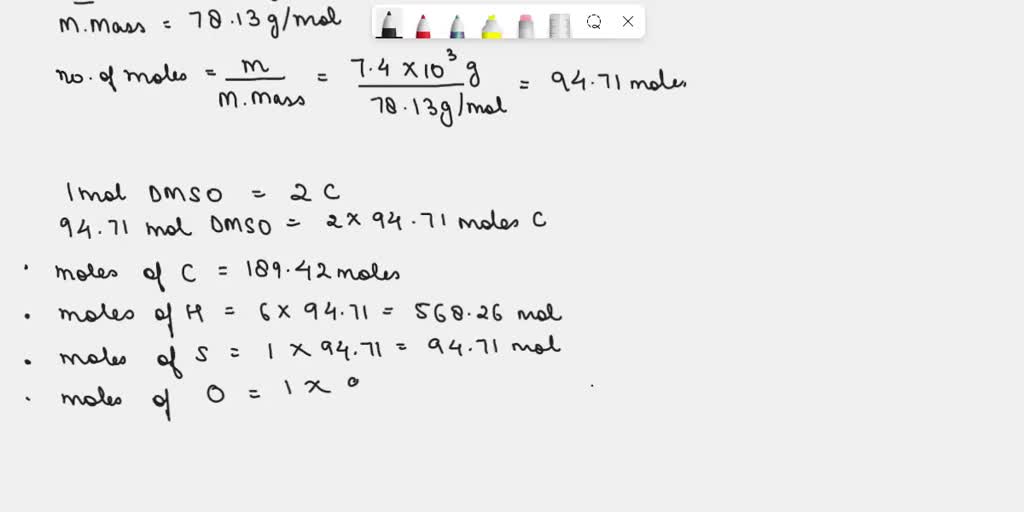 M.Mass = 78.13 g/mol
no. of moles = m / M.Mass = 7.4 × 10³ g / 78.13 g/mol = 94.71 moles
1 mol DMSO = 2 C
94.71 mol DMSO = 2 × 94.71 moles C
• moles of C = 189.42 moles
• moles of H = 6 × 94.71 = 568.26 mol
• moles of S = 1 × 94.71 = 94.71 mol
• moles of O = 1 ×